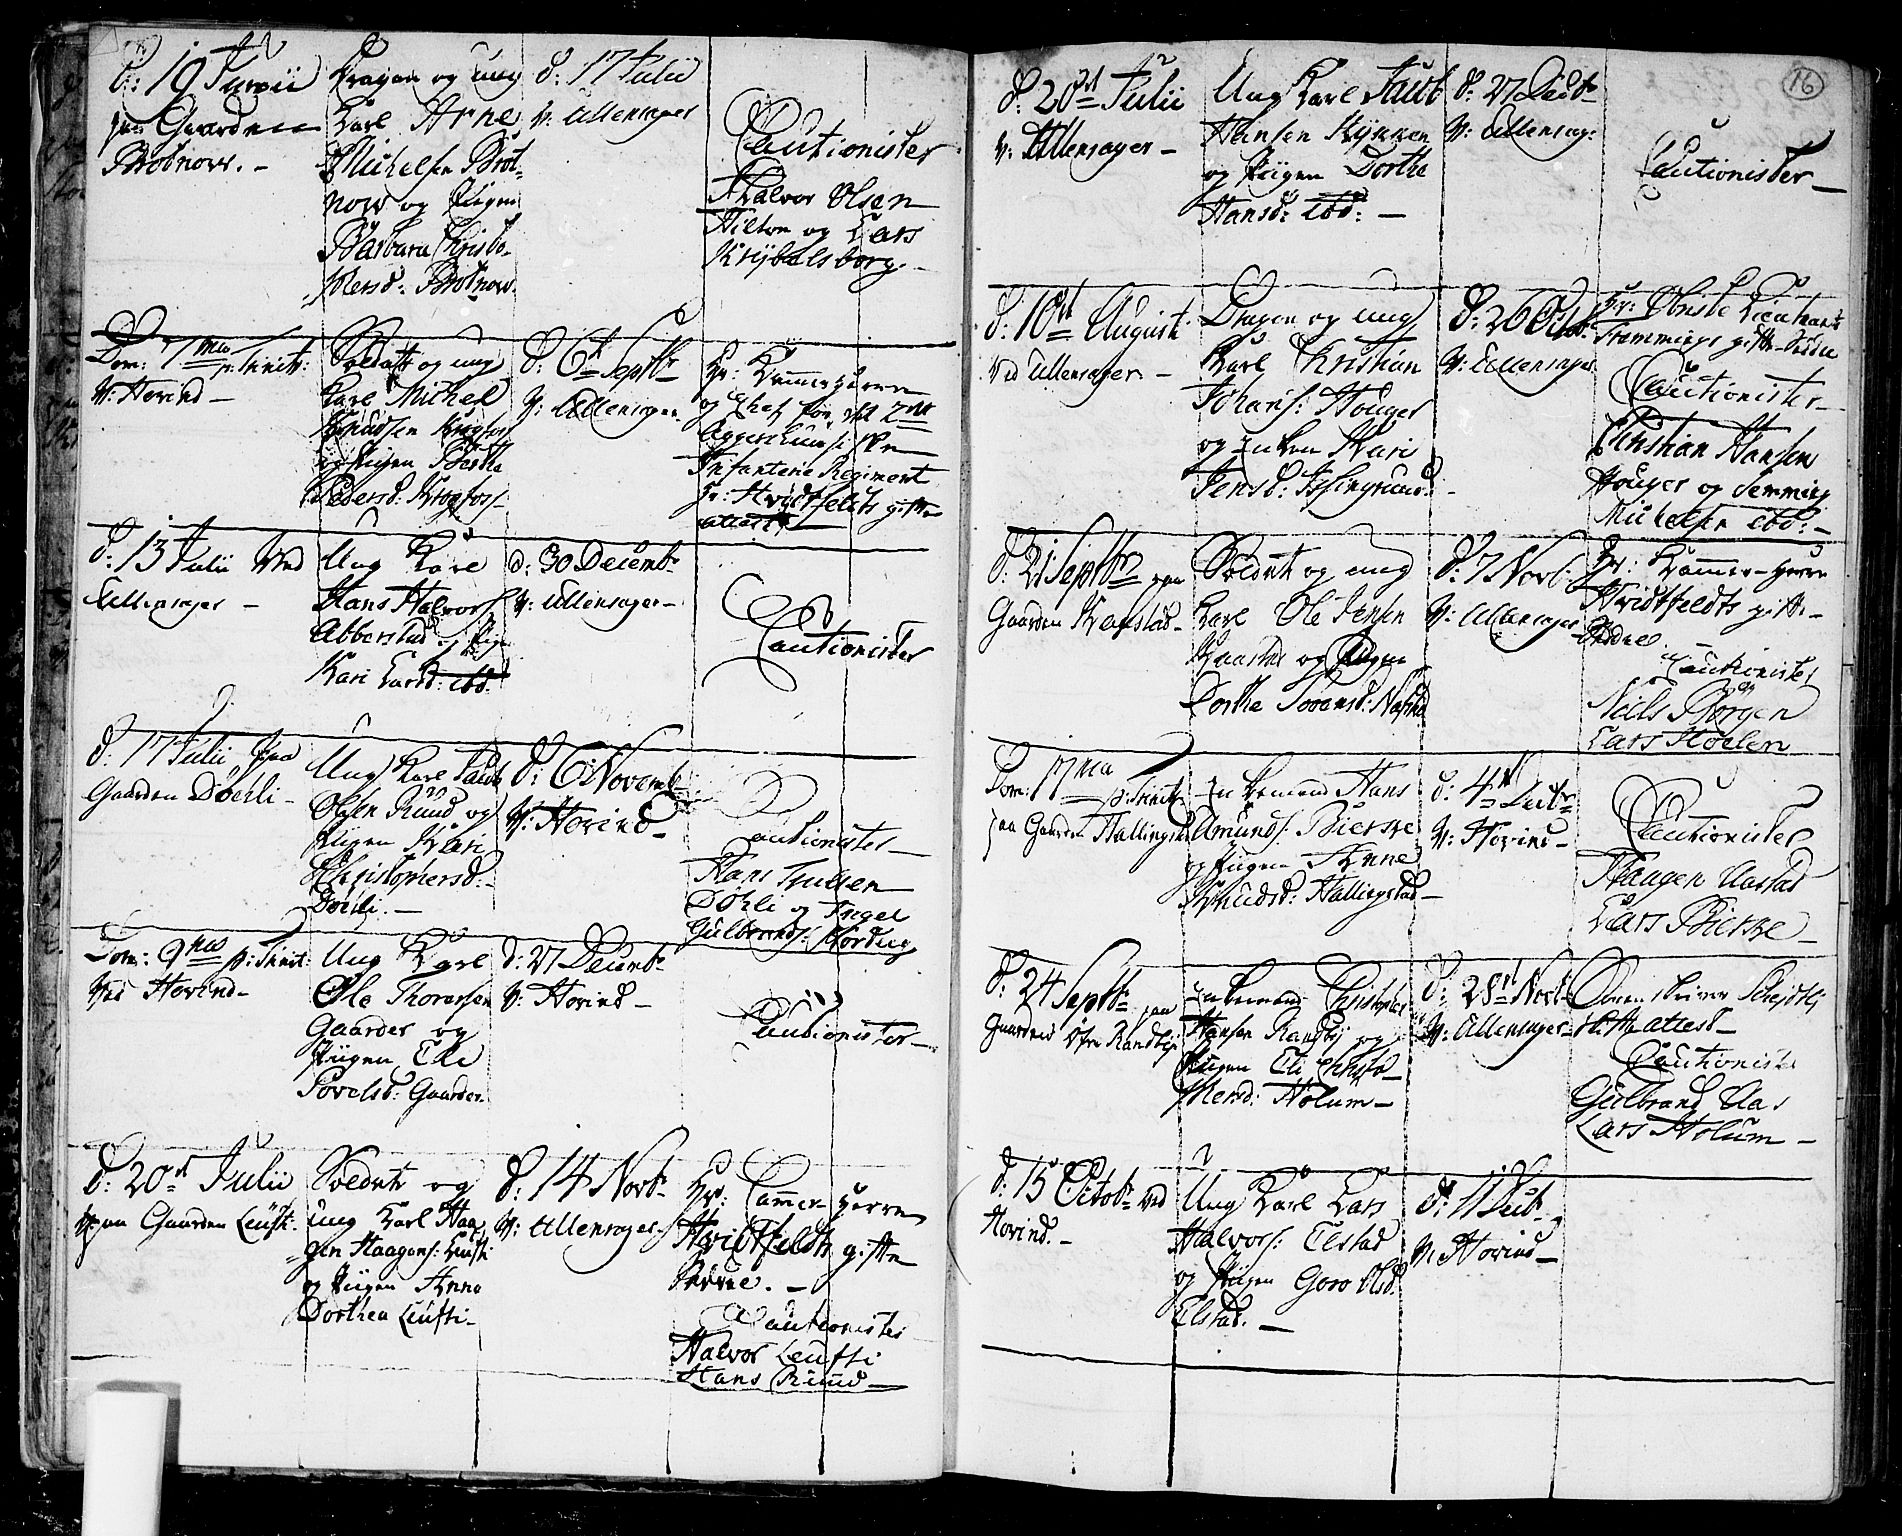 d: 19 Junii
paa Gaarden
Brotnow. –
Dragon og ung
Karl Arne
Michelsen Brot-
now og Pigen
Barbara Christo-
phersd: Brotnow.
d: 17 Julii
v: Ullensager
Cautionister
Halvor Olsen
Hilton og Lars
Krybelsborg. –
Dom: 7ma p: Trinit:
v: Hovind –
Soldat og ung
Karl Michel
Knudsen Krogfos
og Pigen Berthe
Pedersd: Krogfos –
d: 6t Septbr
v: Ullensager.
Hr: Kammerherre
og Chef for det 2det
Aggershuusiske
Infanterie Regiment
Hr: Hvidtfeldts gifte
attest –
d: 13 Julii Ved
Ullensager –
Ung Karl
Hans Halvors:
Abberstad og Pige
Kari Larsd: ibd:
d: 30 Decembr
v: Ullensager –
Cautionister
d: 17 Julii paa
Gaarden Döhli –
Ung Karl Jacob
Olsen Ruud og
Pigen Kari
Christophersd: –
Döhli. –
d: 6 Novemb:
v: Hovind –
Cautionister –
Hans Trulsen
Döhli og Ingel
Gulbrands: Nordug
Dom: 9na p: Trinit:
Ved Hovind –
Ung Karl
Ole Thoresen
Gaarder og
Pigen Eli
Povelsd: Gaarder
d: 27 Decembr
v: Hovind –
Cautionister –
d: 20st Julii
paa Gaarden Leufti.
Soldat og
ung Karl Haa-
gen Haagens: Leufti
og Pigen Anna
Dorthea Leufti –
d: 14 Novbr
v: Ullensager –
Hr: Cammer-Herre
Hvidtfeldts gifte
Seddel. –
Cautionister
Halvor Leufti
Hans Ruud –
16
d: 20st Julii
v: Ullensager –
Ung Karl Jacob
Hansen Kynnen
og Pigen Dorthe
Hansd: ibd: –
d: 27 Decbr
v: Ullensag:
Cautionister –
d: 10st August
Ved Ullensager –
Dragon og ung
Karl Christian
Johans: Houger
og Enken Kari
Jensd: Islingrund. –
d: 26 Octbr
v: Ullensager
Hr: Obriste Lieutenant
Stemmings gifte-Sedel
Cautionister –
Christian Hansen
Houger og Semming
Michelsen ibd: –
d: 21 Septbr paa
Gaarden Kaastad –
Soldat og ung
Karl Ole Jensen
Kaastad og Pigen
Dorthe Sörensd: Nafstad
d: 7 Novb:
v: Ullensager
Hr: Kammer-Herre
Hvidtfeldts gifte-
Seddel –
Cautionister
Niels Borgen
Lars Hoelen
Dom: 17ma p: Trinit:
paa Gaarden Hallingstad
Enkemand Hans
Amunds: Bierke
og Pigen Anne
Knudsd: Hallingstad –
d: 4de Decbr
v: Hovind –
Cautionister
Haagen Aastad
Lars Bierke –
d: 24 Septbr paa
Gaarden Öfre Randby
Enkemand Christopher
Hansen Randby og
Pigen Eli Christo-
phersd: Holum –
d: 28st Novb:
v: Ullensager –
Oberskriver Scheidtlj
skifte attest –
Cautionister
Gulbrand Aas
Lars Holum –
d: 15 Octobr Ved
Hovind. –
Ung Karl Lars
Halvors: Elstad
og Pigen Goro Olsd:
Elstad. –
d: 11 Decb:
v: Hovind –